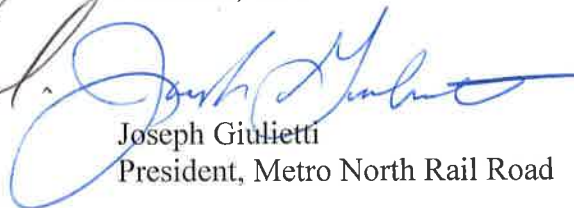 Joseph Giulietti
President, Metro North Rail Road